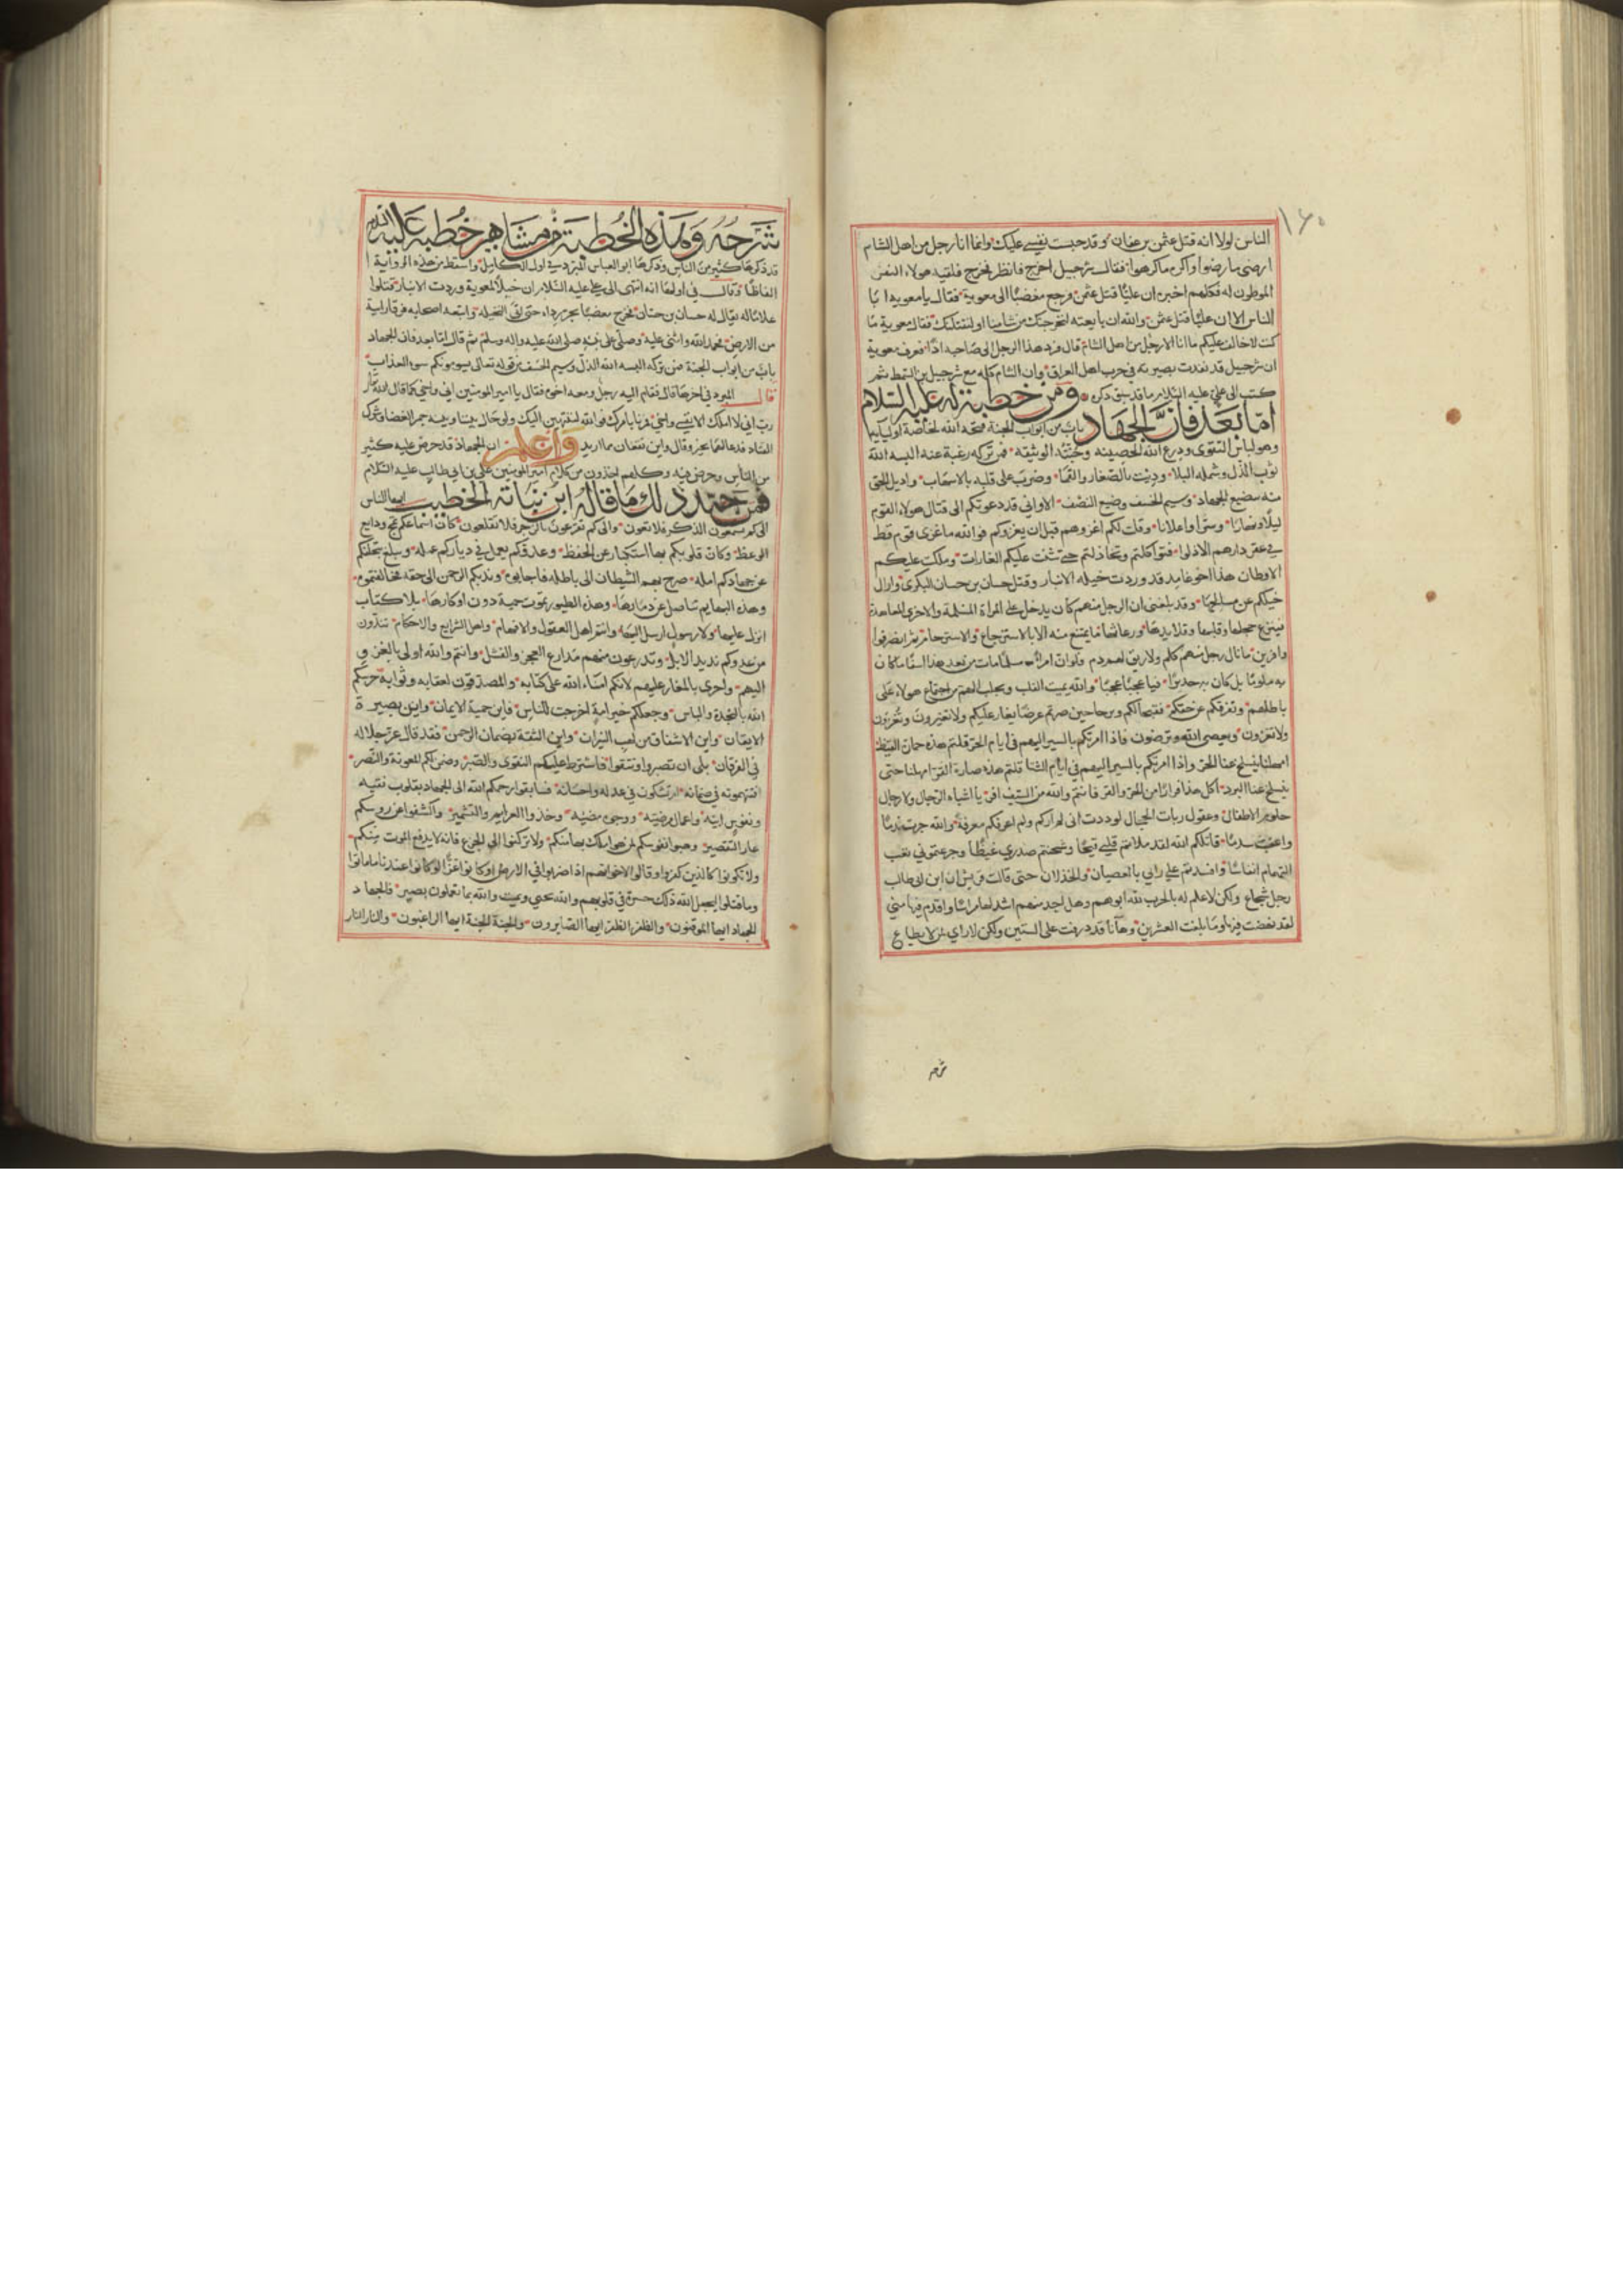 ١٦٠
الناس لولا انه قتل عثمن بن عفان وقد حبست نفسي عليك وانما انا رجل من اهل الشام
ارضى ما رضوا واكره ما كرهوا فقال شرجيل اخرج فانظر فخرج فلقيه هولاء النفر
الموطون له فكلهم اخبره ان عليًا قتل عثمن فرجع مغضبًا الى معوية فقال يا معوية ابا
الناس الا ان عليًا قتل عثمن والله ان بايعته لنخرجنك من شامنا او لنقتلنك فقال معوية ما
كنت لاخالف عليكم ما انا الا رجل من اهل الشام قال فرد هذا الرجل الى صاحبه اذًا فعرف معوية
ان شرجيل قد نفذت بصيرته في حرب اهل العراق وان الشام كله مع شرجيل بن السمط ثم
كتب الى علي عليه السلام ما قد سبق ذكره ومن خطبة له عليه السلام
اما بعد فان الجهاد باب من ابواب الجنة فتحه الله لخاصة اوليائه
وهو لباس التقوى ودرع الله الحصينه وجنته الوثيقه فمن تركه رغبة عنه البسه الله
ثوب الذل وشمله البلا وديث بالصغار والقما وضرب على قلبه بالاسهاب واديل الحق
منه بتضيع الجهاد وسيم الخسف ومنع النصف الا واني قد دعوتكم الى قتال هولاء القوم
ليلًا ونهارًا وسرًا واعلانا وقلت لكم اغزوهم قبل ان يغزوكم فوالله ما غزى قوم قط
في عقر دارهم الا ذلوا فتواكلتم وتخاذلتم حتى شنت عليكم الغارات وملكت عليكم
الاوطان هذا اخو غامد قد وردت خيله الانبار وقتل حسان بن حسان البكرى وازال
خيلكم عن مسالحها وقد بلغنى ان الرجل منهم كان يدخل على المراة المسلمة والاخرى المعاهدة
فينتزع حجلها وقلبها وقلايدها ورعاثها ما يمتنع منه الا بالاسترجاع والاسترحام ثم انصرفوا
وافرين ما نال رجل منهم كلم ولا اريق لهم دم فلو ان امرأ مسلمًا مات من بعد هذا اسفًا ما كان
به ملومًا بل كان به جديرًا فيا عجبًا عجبًا والله يميت القلب ويجلب الهم من اجتماع هولاء على
باطلهم وتفرقكم عن حقكم فقبحًا لكم وترحا حين صرتم غرضًا يغار عليكم ولا تغيرون وتُغزون
ولا تغزون ويعصى الله وترضون فاذا امرتكم بالسير اليهم في ايام الحر قلتم هذه حمارة القيظ
امهلنا يسبخ عنا الحر واذا امرتكم بالسير اليهم في ايام الشتا قلتم هذه صبارة القر امهلنا حتى
ينسلخ عنا البرد اكل هذا فرارًا من الحر والقر فانتم والله من السيف افر يا اشباه الرجال ولا رجال
حلوم الاطفال وعقول ربات الحجال لوددت انى لم اركم ولم اعرفكم معرفة والله جرت ندمًا
واعقبت سدمًا قاتلكم الله لقد ملاتم قلبي قيحًا وشحنتم صدري غيظًا وجرعتموني نغب
التهمام انفاسًا وافسدتم علي رايي بالعصيان والخذلان حتى قالت قريش ان ابن ابي طالب
رجل شجاع ولكن لا علم له بالحرب لله ابوهم وهل احد منهم اشد لها مراسًا واقدم فيها مني
لقد نهضت فيها وما بلغت العشرين وها انا قد ذرفت على الستين ولكن لا راي لمن لا يطاع
شرحه
شَرحُهُ وَهذه الخُطبة من مشاهير خُطبه عليه السلام
قد ذكرها كثير من الناس وذكرها ابو العباس المبرد في اول الكامل واسقط من هذه الرواية ا
الفاظًا وقال في اولها انه انتهى الى علي عليه السلام ان خيلًا لمعوية وردت الانبار فقتلوا
عاملًا له يقال له حسان بن حسان فخرج مغضبًا يجر رداه حتى اتى النخيله واتبعه اصحابه فرقا رابية
من الارض فحمد الله واثنى عليه وصلى على نبيه صلى الله عليه واله وسلم ثم قال اما بعد فان الجهاد
باب من ابواب الجنة فمن تركه البسه الله الذل وسيم الخسف من قوله تعالى يسومونكم سوء العذاب
قال المبرد في اخرها قال فقام اليه رجل ومعه اخوه فقال يا امير المومنين اني واخي كما قال الله تعالى
رب اني لا املك الا نفسي واخي فمرنا بامرك فوالله لننتهين اليك ولو حال بيننا وبينه جمر الغضا وشوك
القتاد فدعا لهما بخير وقال واين تقعان مما اريد واعلم ان الجهاد قد حرض عليه كثير
من الناس وحرض فيه وكلهم اخذون من كلام امير المومنين علي بن ابي طالب عليه السلام
فمن جيد ذلك ما قاله ابن نباتة الخطيب ايها الناس
الى كم تسمعون الذكر فلا تعون والى كم تقرعون بالزجر فلا تقلعون كان اسماعكم تمج ودايع
الوعظ وكان قلوبكم بها استكبار عن الحفظ وعدوكم يعمل في دياركم عمله ويبلغ بتخلفكم
عن جهادكم امله صرخ بهم الشيطان الى باطله فاجابوه وندبكم الرحمن الى حقه فخالفتموه
وهذه البهايم تناضل عن ذمارها وهذه الطيور تموت حمية دون اوكارها بلا كتاب
انزل عليها ولا رسول ارسل اليها وانتم اهل العقول والافهام واهل الشرايع والاحكام تندون
من عدوكم نديد الابل وتدرعون منهم مدارع العجز والفشل وانتم والله اولى بالغزو
اليهم واحرى بالمغار عليهم لانكم امناء الله على كتابه والمصدقون لعقابه وثوابه خصكم
الله بالنجدة والباس وجعلكم خير امة اخرجت للناس فاين حمية الايمان واين بصيرة
الايقان واين الاشفاق من لهب النيران واين الثقة بضمان الرحمن فقد قال عز جلاله
في الفرقان بلى ان تصبروا وتتقوا فاشترط عليكم التقوى والصبر وضمن لكم المعونة والنصر
افتتهمونه في ضمانه ام تشكون في عدله واحسانه فسابقوا رحمكم الله الى الجهاد بقلوب نقيه
ونفوس ابية واعمال رضيته ووجوه مضيه وخذوا العزايم والتشمير واكشفوا عن روسكم
عار التقصير وهبوا نفوسكم لمن هو املك بها منكم ولا تركنوا الى الجزع فانه لا يدفع الموت عنكم
ولا تكونوا كالذين كفروا وقالوا لاخوانهم اذا ضربوا في الارض او كانوا غزًا لو كانوا عندنا ما ماتوا
وما قتلوا ليجعل الله ذلك حسرة في قلوبهم والله يحيي ويميت والله بما تعملون بصير فالجهاد
الجهاد ايها الموقنون والظفر الظفر ايها الصابرون والجنة الجنة ايها الراغبون والنار النار